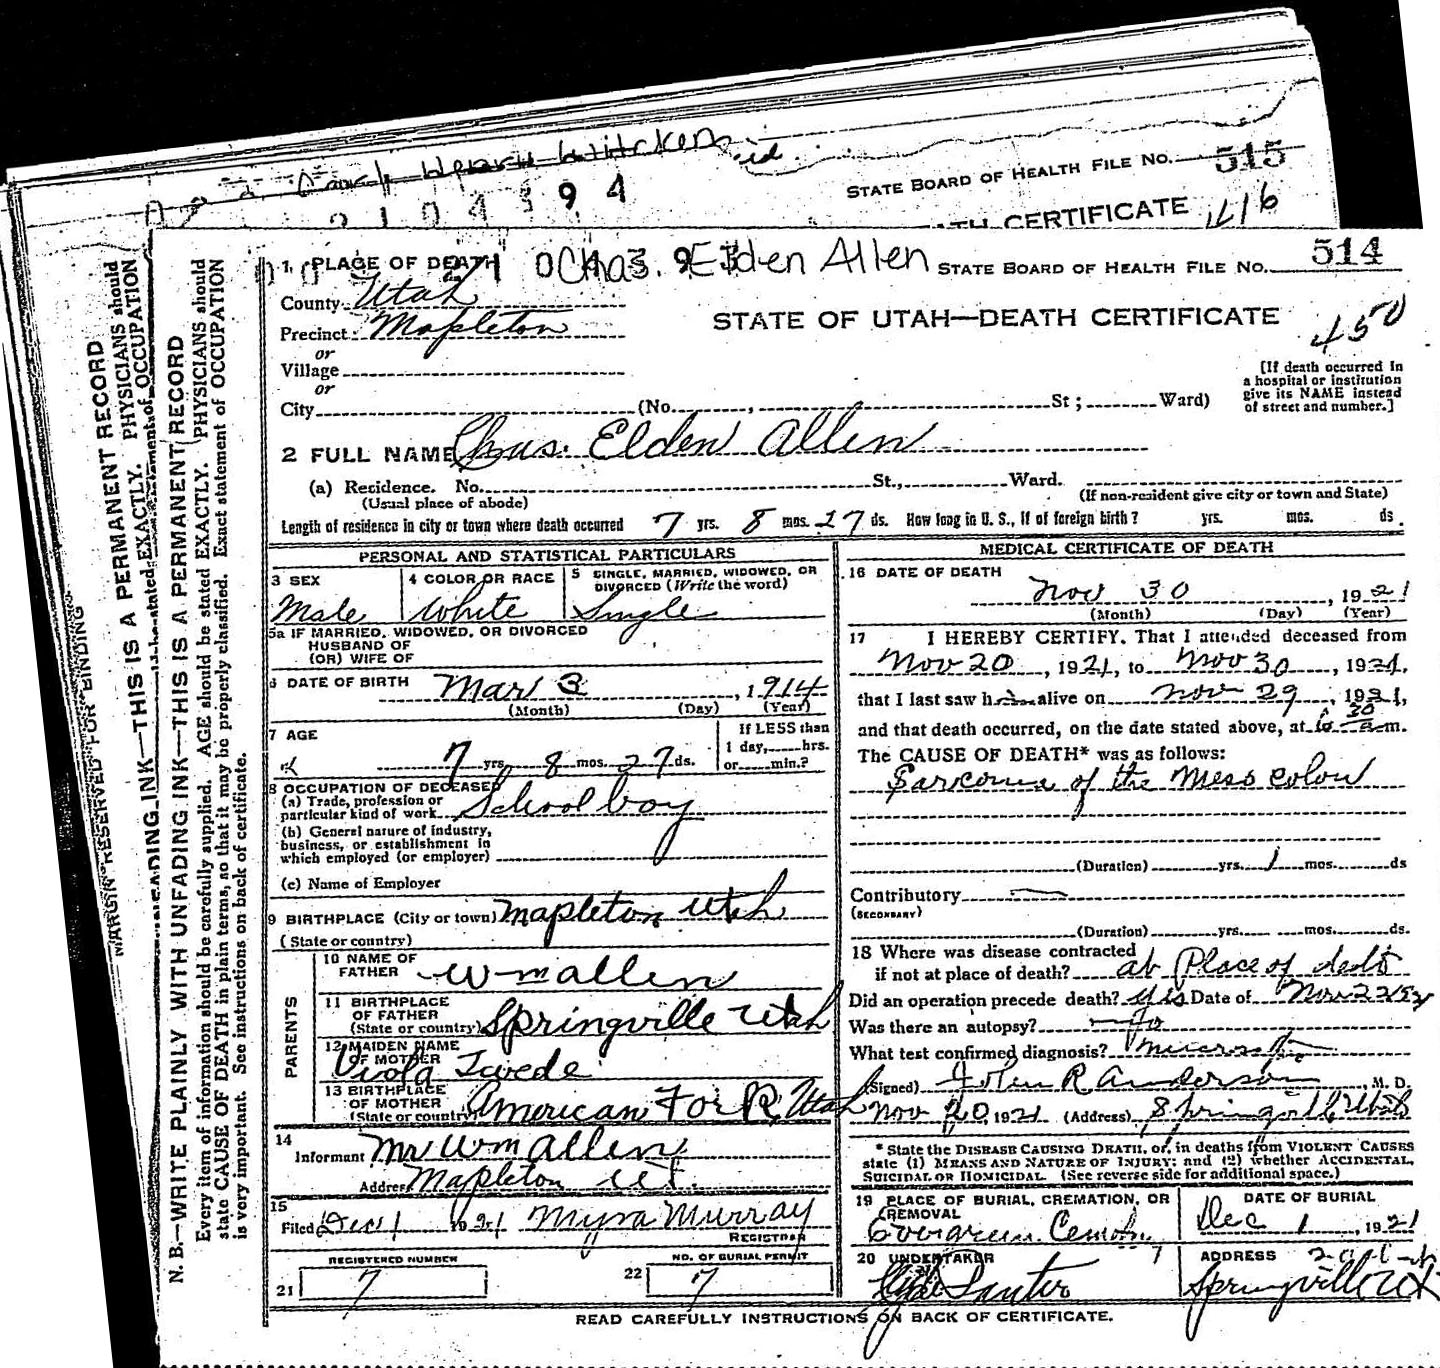 STATE BOARD OF HEALTH FILE NO. 515
CERTIFICATE
1416
1 PLACE OF DEATH
Chas. Elden Allen
STATE BOARD OF HEALTH FILE NO. 514
County Utah
Precinct Mapleton
STATE OF UTAH—DEATH CERTIFICATE
450
or
Village
or
City (No. , St ; Ward)
[If death occurred in
a hospital or institution
give its NAME instead
of street and number.]
2 FULL NAME Chas. Elden Allen
(a) Residence. No. St., Ward.
(Usual place of abode) (If non-resident give city or town and State)
Length of residence in city or town where death occurred 7 yrs. 8 mos. 27 ds. How long in U. S., if of foreign birth? yrs. mos. ds.
PERSONAL AND STATISTICAL PARTICULARS
3 SEX
Male
4 COLOR OR RACE
White
5 SINGLE, MARRIED, WIDOWED, OR
DIVORCED (Write the word)
Single
5a IF MARRIED, WIDOWED, OR DIVORCED
HUSBAND OF
(OR) WIFE OF
6 DATE OF BIRTH Mar 3, 1914
(Month) (Day) (Year)
7 AGE
7 yrs. 8 mos. 27 ds.
If LESS than
1 day, hrs.
or min.?
8 OCCUPATION OF DECEASED
(a) Trade, profession or
particular kind of work School boy
(b) General nature of industry,
business, or establishment in
which employed (or employer)
(c) Name of Employer
9 BIRTHPLACE (City or town) Mapleton Utah
(State or country)
PARENTS
10 NAME OF
FATHER Wm Allen
11 BIRTHPLACE
OF FATHER
(State or country) Springville Utah
12 MAIDEN NAME
OF MOTHER
Viola Twede
13 BIRTHPLACE
OF MOTHER
(State or country) American For R, Utah
14
Informant Mr Wm Allen
Address Mapleton Ut.
15
Filed Dec 1 1921 Myra Murray
REGISTRAR
REGISTERED NUMBER
21 7
NO. OF BURIAL PERMIT
22 7
MEDICAL CERTIFICATE OF DEATH
16 DATE OF DEATH
Nov 30, 1921
(Month) (Day) (Year)
17 I HEREBY CERTIFY. That I attended deceased from
Nov 20, 1921, to Nov 30, 1921,
that I last saw h alive on Nov 29, 1921,
and that death occurred, on the date stated above, at 30 a m.
The CAUSE OF DEATH* was as follows:
Sarcoma of the Meso colon
(Duration) yrs. 1 mos. ds
Contributory
(SECONDARY)
(Duration) yrs. mos. ds.
18 Where was disease contracted
if not at place of death? at Place of death
Did an operation precede death? yes Date of Nov 22 1921
Was there an autopsy? No
What test confirmed diagnosis?
(Signed) John R Anderson, M. D.
Nov 20, 1921 (Address) Springville Utah
* State the DISEASE CAUSING DEATH, or, in deaths from VIOLENT CAUSES
state (1) MEANS AND NATURE OF INJURY; and (2) whether ACCIDENTAL,
SUICIDAL OR HOMICIDAL. (See reverse side for additional space.)
19 PLACE OF BURIAL, CREMATION, OR
REMOVAL
Evergreen Cemetery
DATE OF BURIAL
Dec 1, 1921
20 UNDERTAKER
Clyde Santer
ADDRESS
Springville Ut
READ CAREFULLY INSTRUCTIONS ON BACK OF CERTIFICATE.
MARGIN RESERVED FOR BINDING
UNFADING INK—THIS IS A PERMANENT RECORD
stated EXACTLY. PHYSICIANS should
statement of OCCUPATION
N. B.—WRITE PLAINLY WITH UNFADING INK—THIS IS A PERMANENT RECORD
Every item of information should be carefully supplied. AGE should be stated EXACTLY. PHYSICIANS should
state CAUSE OF DEATH in plain terms, so that it may be properly classified. Exact statement of OCCUPATION
is very important. See instructions on back of certificate.